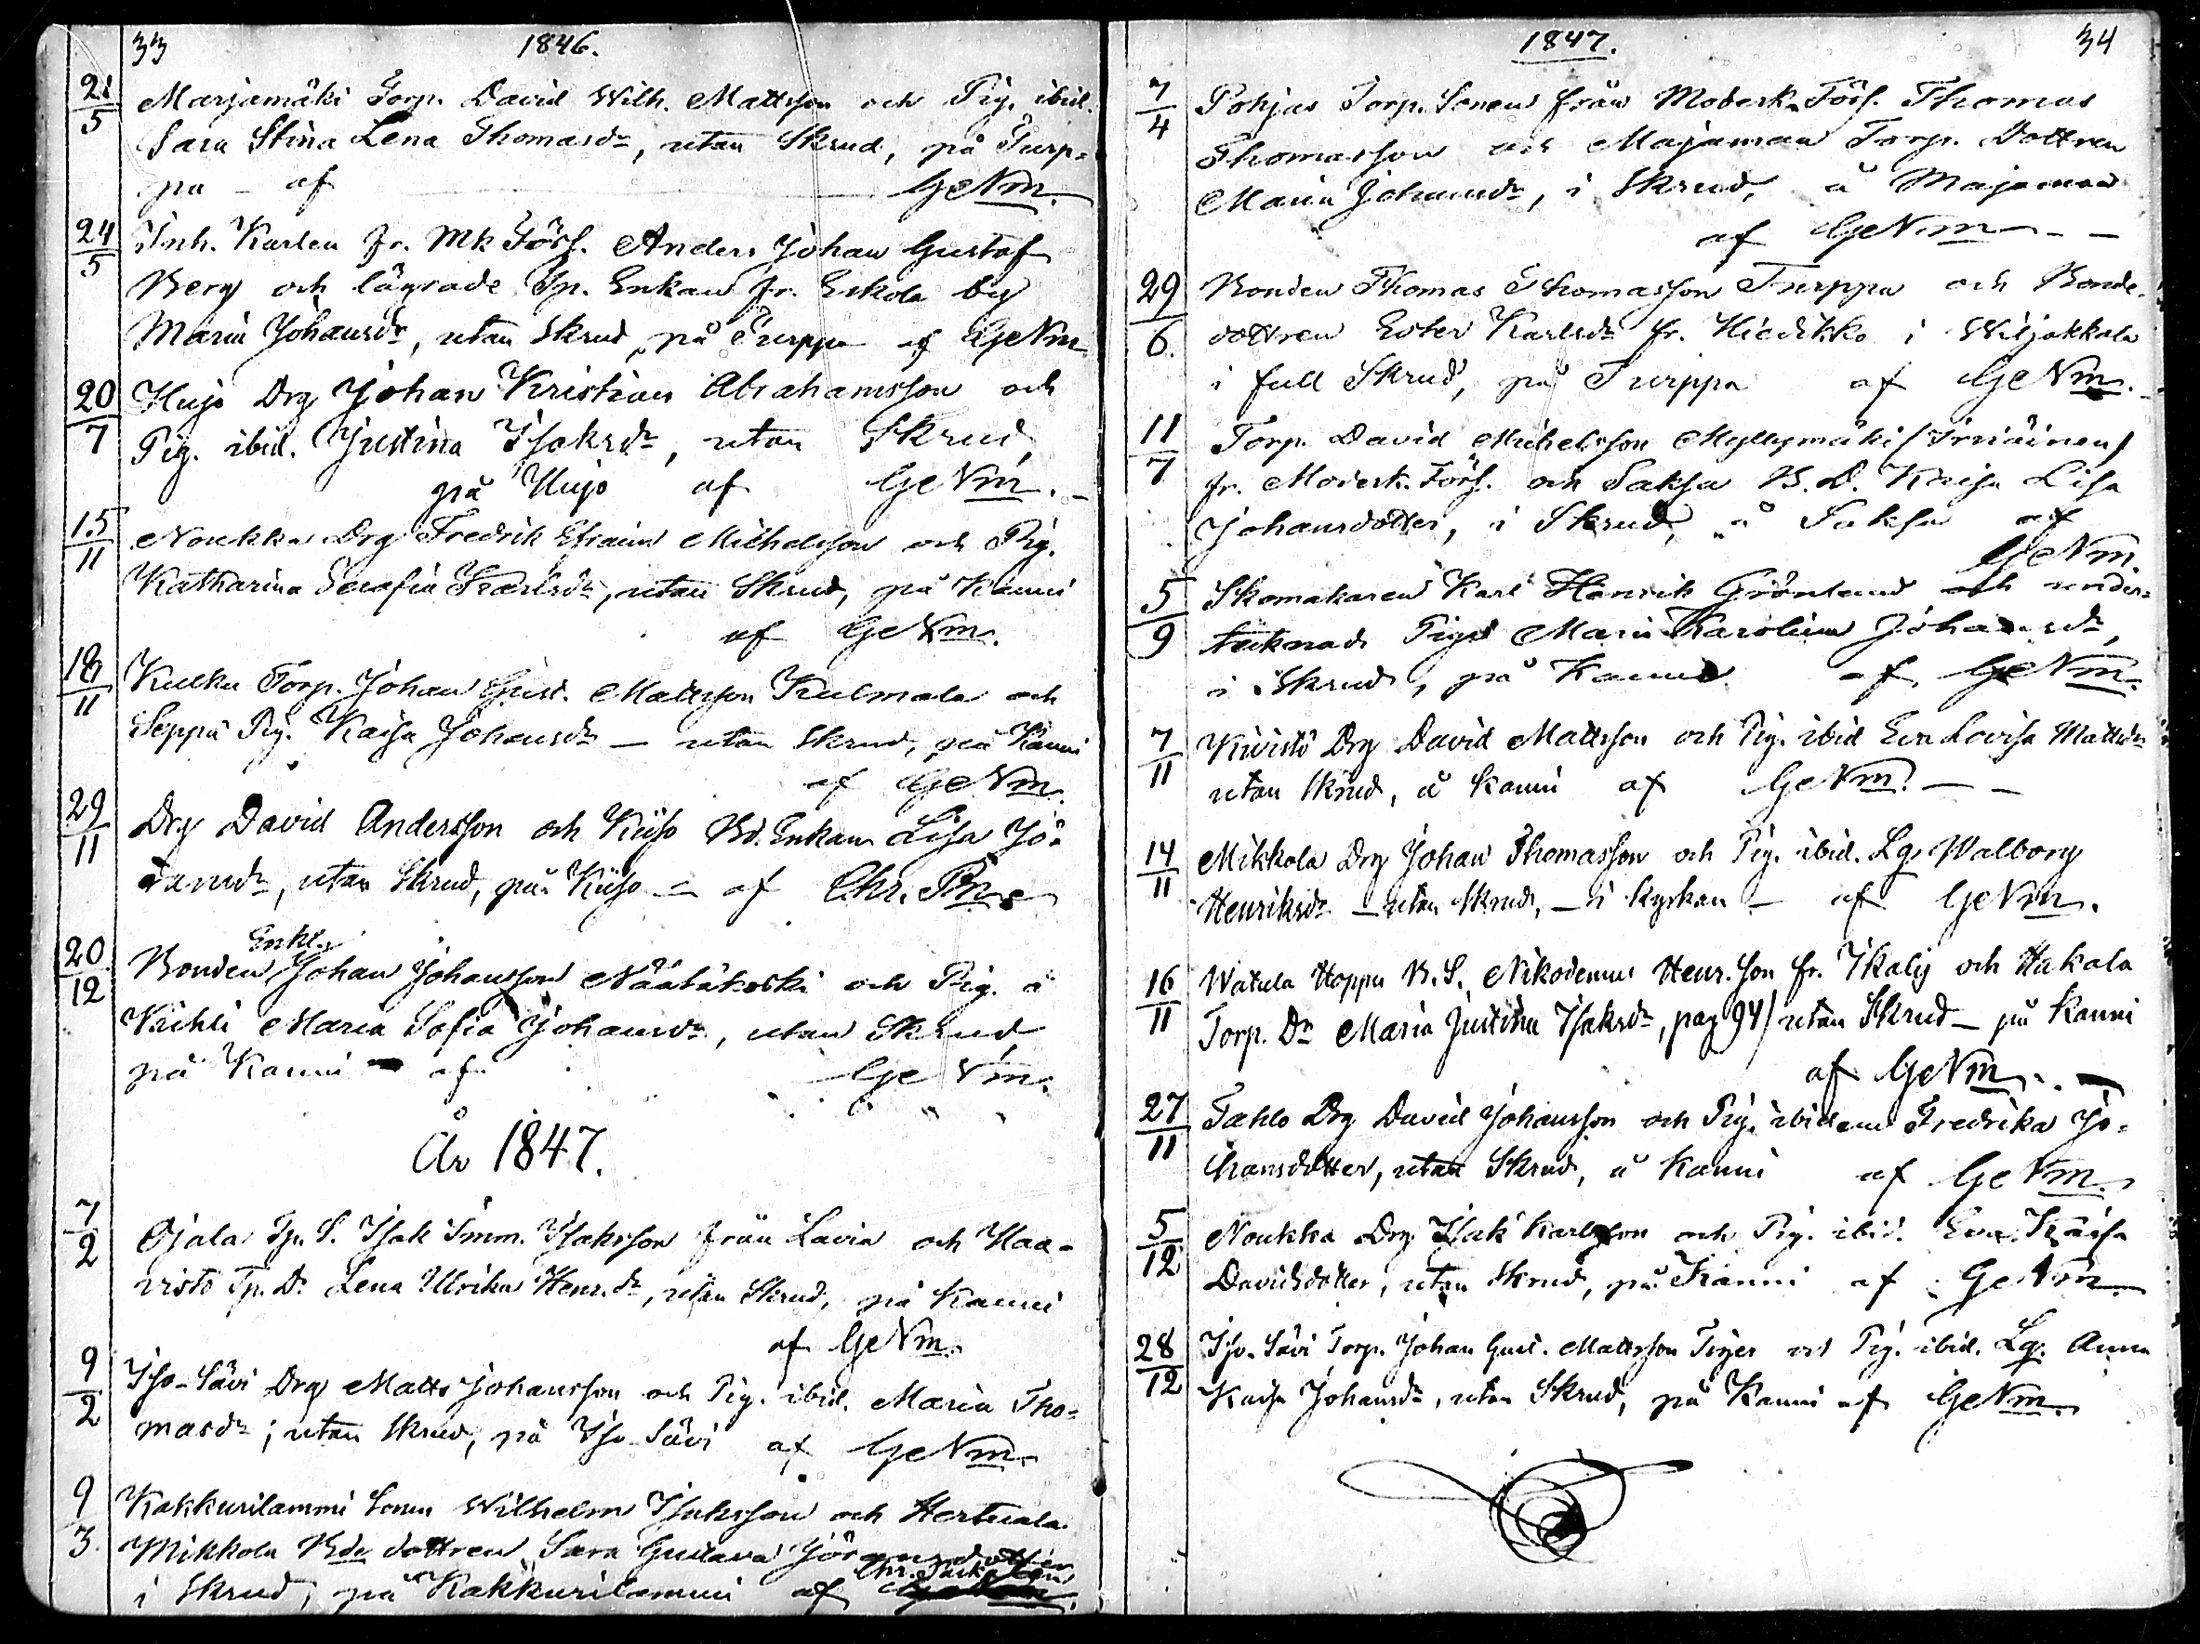 33 1846.
21/5 Marjamäki Torp. David Wilh. Mattsson och Pig. ibid.
Sara Stina Lena Thomasdr, utan Skrud, på Turp-
pa - af GeNm.
24/5 Inh. Karlen fr. Mk Förs. Anders Johan Gustaf
Berg och lägrade Tp. Enkan fr. Eskola by
Maria Johansdr, utan Skrud, på Turppa af GeNm
20/7 Hujo Drg Johan Kristian Abrahamsson och
Pig. ibid. Justina Isaksdr, utan Skrud,
på Hujo af GeNm.
15/11 Noukka Drg Fredrik Efraim Michelsson och Pig.
Katharina Serafia Karlsdr, utan Skrud, på Kanni
af GeNm.
18/11 Kulku Torp. Johan Gust. Mattsson Kulmala och
Seppä Pig. Kaisa Johansdr - utan Skrud, på Kanni
af GeNm.
29/11 Drg David Andersson och Kiiso Bd. Enkan Lisa Jö-
ransdr, utan Skrud, på Kiiso - af Chr. Pm
20/12 Bonden Enkl. Johan Johansson Näätäkoski och Pig. å
Krihli Maria Sofia Johansdr, utan Skrud
på Kanni - af GeNm.
År 1847.
7/2 Ojala Tp. S. Isak Imm. Isaksson från Lavia och Haa-
visto Tp. D. Lena Ulrika Henr.dr, utan Skrud, på Kanni
af GeNm.
9/2 Iso-Sävi Drg Matts Johansson och Pig. ibid. Maria Tho-
masdr; utan Skrud, på Iso Sävi af GeNm.
9/3. Kakkurilammi Sonen Wilhelm Isaksson och Hertuala
Mikkola Bde dottren Sara Gustava Göransdotter
i Skrud, på Kakkurilammi af Chr.
1847. 34
7/4 Pohjas Torp. Sonen från Moderk. Förs. Thomas
Thomasson och Majamaa Torp. Dottren
Maria Johansdr, i Skrud, å Majamaa
af GeNm - -
29/6. Bonden Thomas Thomasson Turppa och Bonde-
dottren Ester Karlsdr fr. Hiedikko i Wiljakkala
i full Skrud, på Turppa af GeNm.
11/7 Torp. David Michelsson Myllymäki
fr. Moderk. Förs. och Saksa B. D. Kaisa Lisa
Johansdotter, i Skrud, å Saksa af
GeNm.
5/9 Skomakaren Karl Henrik Grönlund och under-
tecknads Piga Maria Karolina Johansdr,
i Skrud, på Kanni af GeNm.
7/11 Kivistö Drg David Mattsson och Pig. ibid Eva Lovisa Mattsdr
utan Skrud, å Kanni af GeNm. - -
14/11 Mikkola Drg Johan Thomasson och Pig. ibid. Lg. Walborg
Henriksdr - utan Skrud, - i kyrkan - af GeNm.
16/11 Watula Hoppu B. S. Nikodemus Henr.son fr. Ikalis och Hakala
Torp. Dr Maria Justina Isaksdr, pag 94/ utan Skrud - på Kanni
af GeNm.
27/11 Sahlo Drg David Johansson och Pig. ibidem Fredrika Jo-
hansdotter, utan Skrud, å Kanni af GeNm.
5/12 Noukka Drg Isak Karlsson och Pig. ibid. Eva Kaisa
Davidsdotter, utan Skrud, på Kanni af GeNm.
28/12 Iso-Sävi Torp. Johan Gust. Mattsson Tiger och Pig. ibid. Lg. Anna
Kaisa Johansdr, utan Skrud, på Kanni af GeNm.